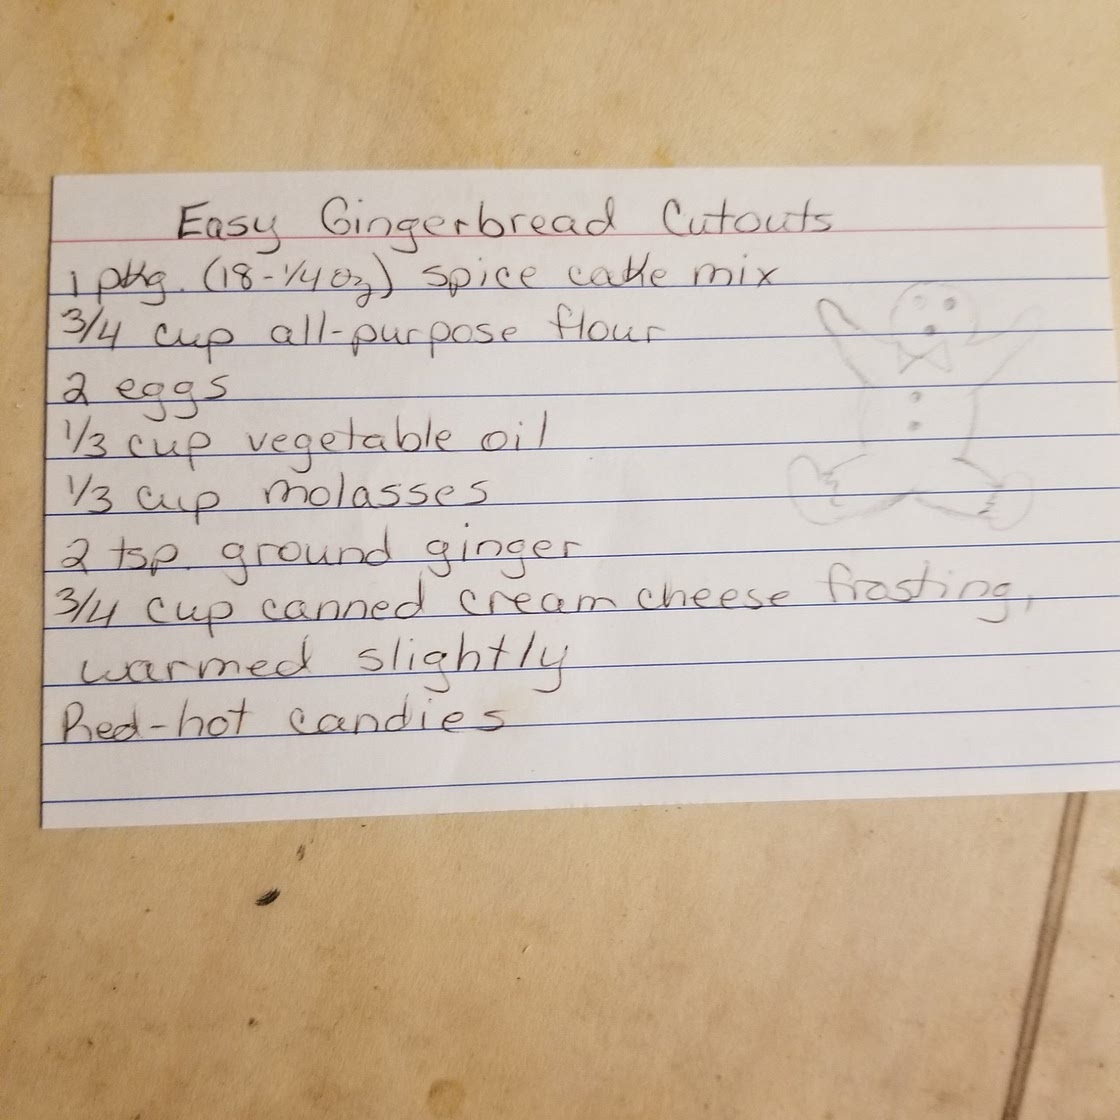 Easy Gingerbread Cutouts
1 pkg. (18-1/4 oz) spice cake mix
3/4 cup all-purpose flour
2 eggs
1/3 cup vegetable oil
1/3 cup molasses
2 tsp. ground ginger
3/4 cup canned cream cheese frosting,
warmed slightly
Red-hot candies